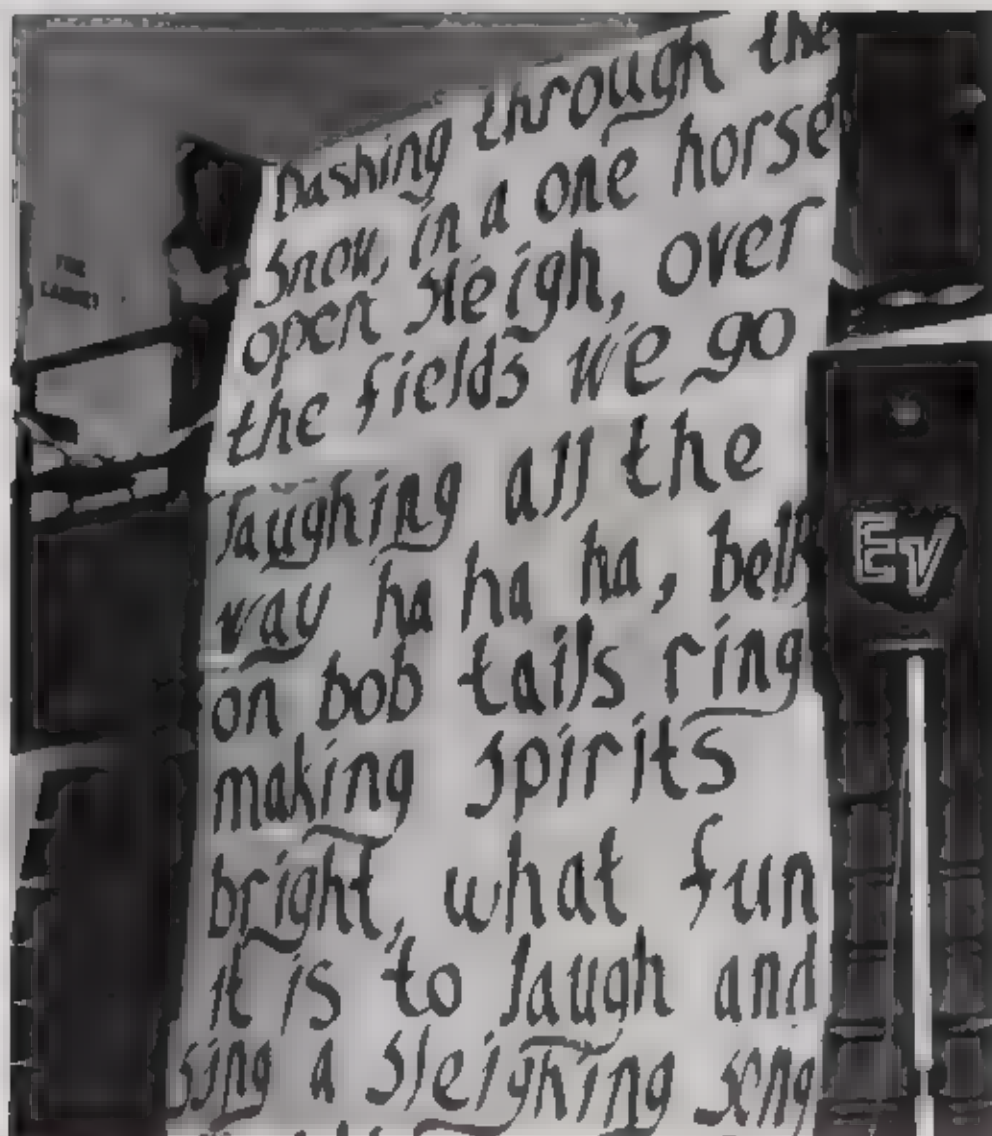 Dashing through the
Snow, in a one horse
open sleigh, over
the fields we go
laughing all the
way ha ha ha, bells
on bob tails ring
making spirits
bright, what fun
it is to laugh and
sing a sleighing song
EV